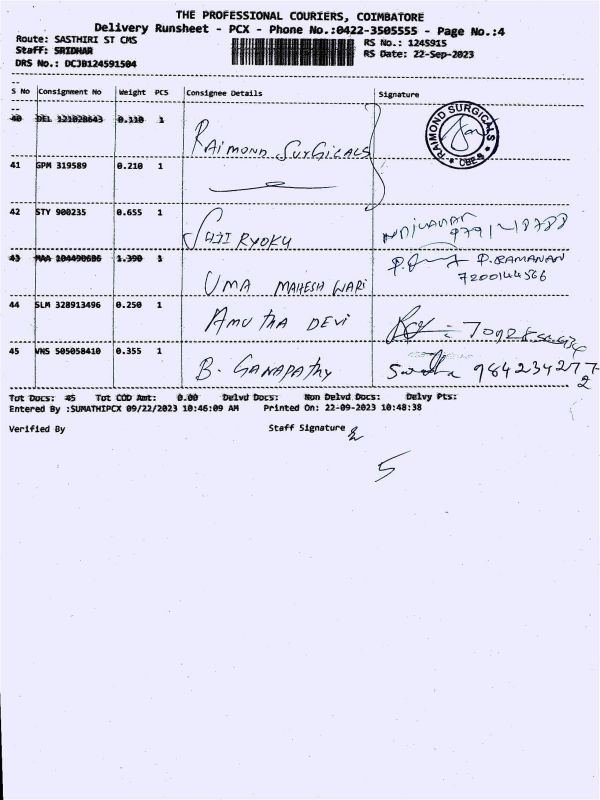 THE PROFESSIONAL COURIERS, COIMBATORE
Delivery Runsheet - PCX - Phone No.:0422-3505555 - Page No.:4
Route: SASTHIRI ST CMS
RS No.: 1245915
Staff: SRIDHAR
RS Date: 22-Sep-2023
DRS No.: DCJB124591504
S No Consignment No Weight PCS Consignee Details Signature
40 DEL 121028643 0.110 1
RAIMOND SURGICALS
RAIMOND SURGICALS * CBE *
41 GPM 319589 0.210 1
42 STY 900235 0.655 1
RYOKU
43 MAA 104490686 1.390 1
UMA MAHESHWARI
P. RAMANAN
7200144566
44 SLM 328913496 0.250 1
AMUTHA DEVI
45 VNS 505058410 0.355 1
B. GANAPATHY
9842342772
Tot Docs: 45 Tot COD Amt: 0.00 Delvd Docs: Non Delvd Docs: Delvy Pts:
Entered By :SUMATHIPCX 09/22/2023 10:46:09 AM Printed On: 22-09-2023 10:48:38
Verified By Staff Signature
5